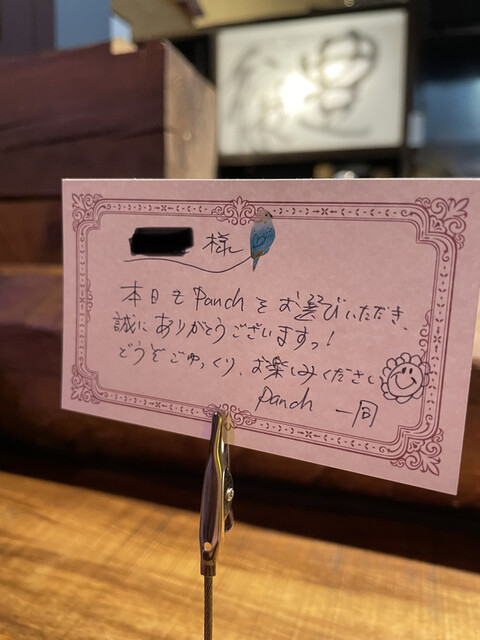 様
本日もPanchをお選びいただき、
誠にありがとうございますっ!
どうぞごゆっくり、お楽しみください
Panch 一同